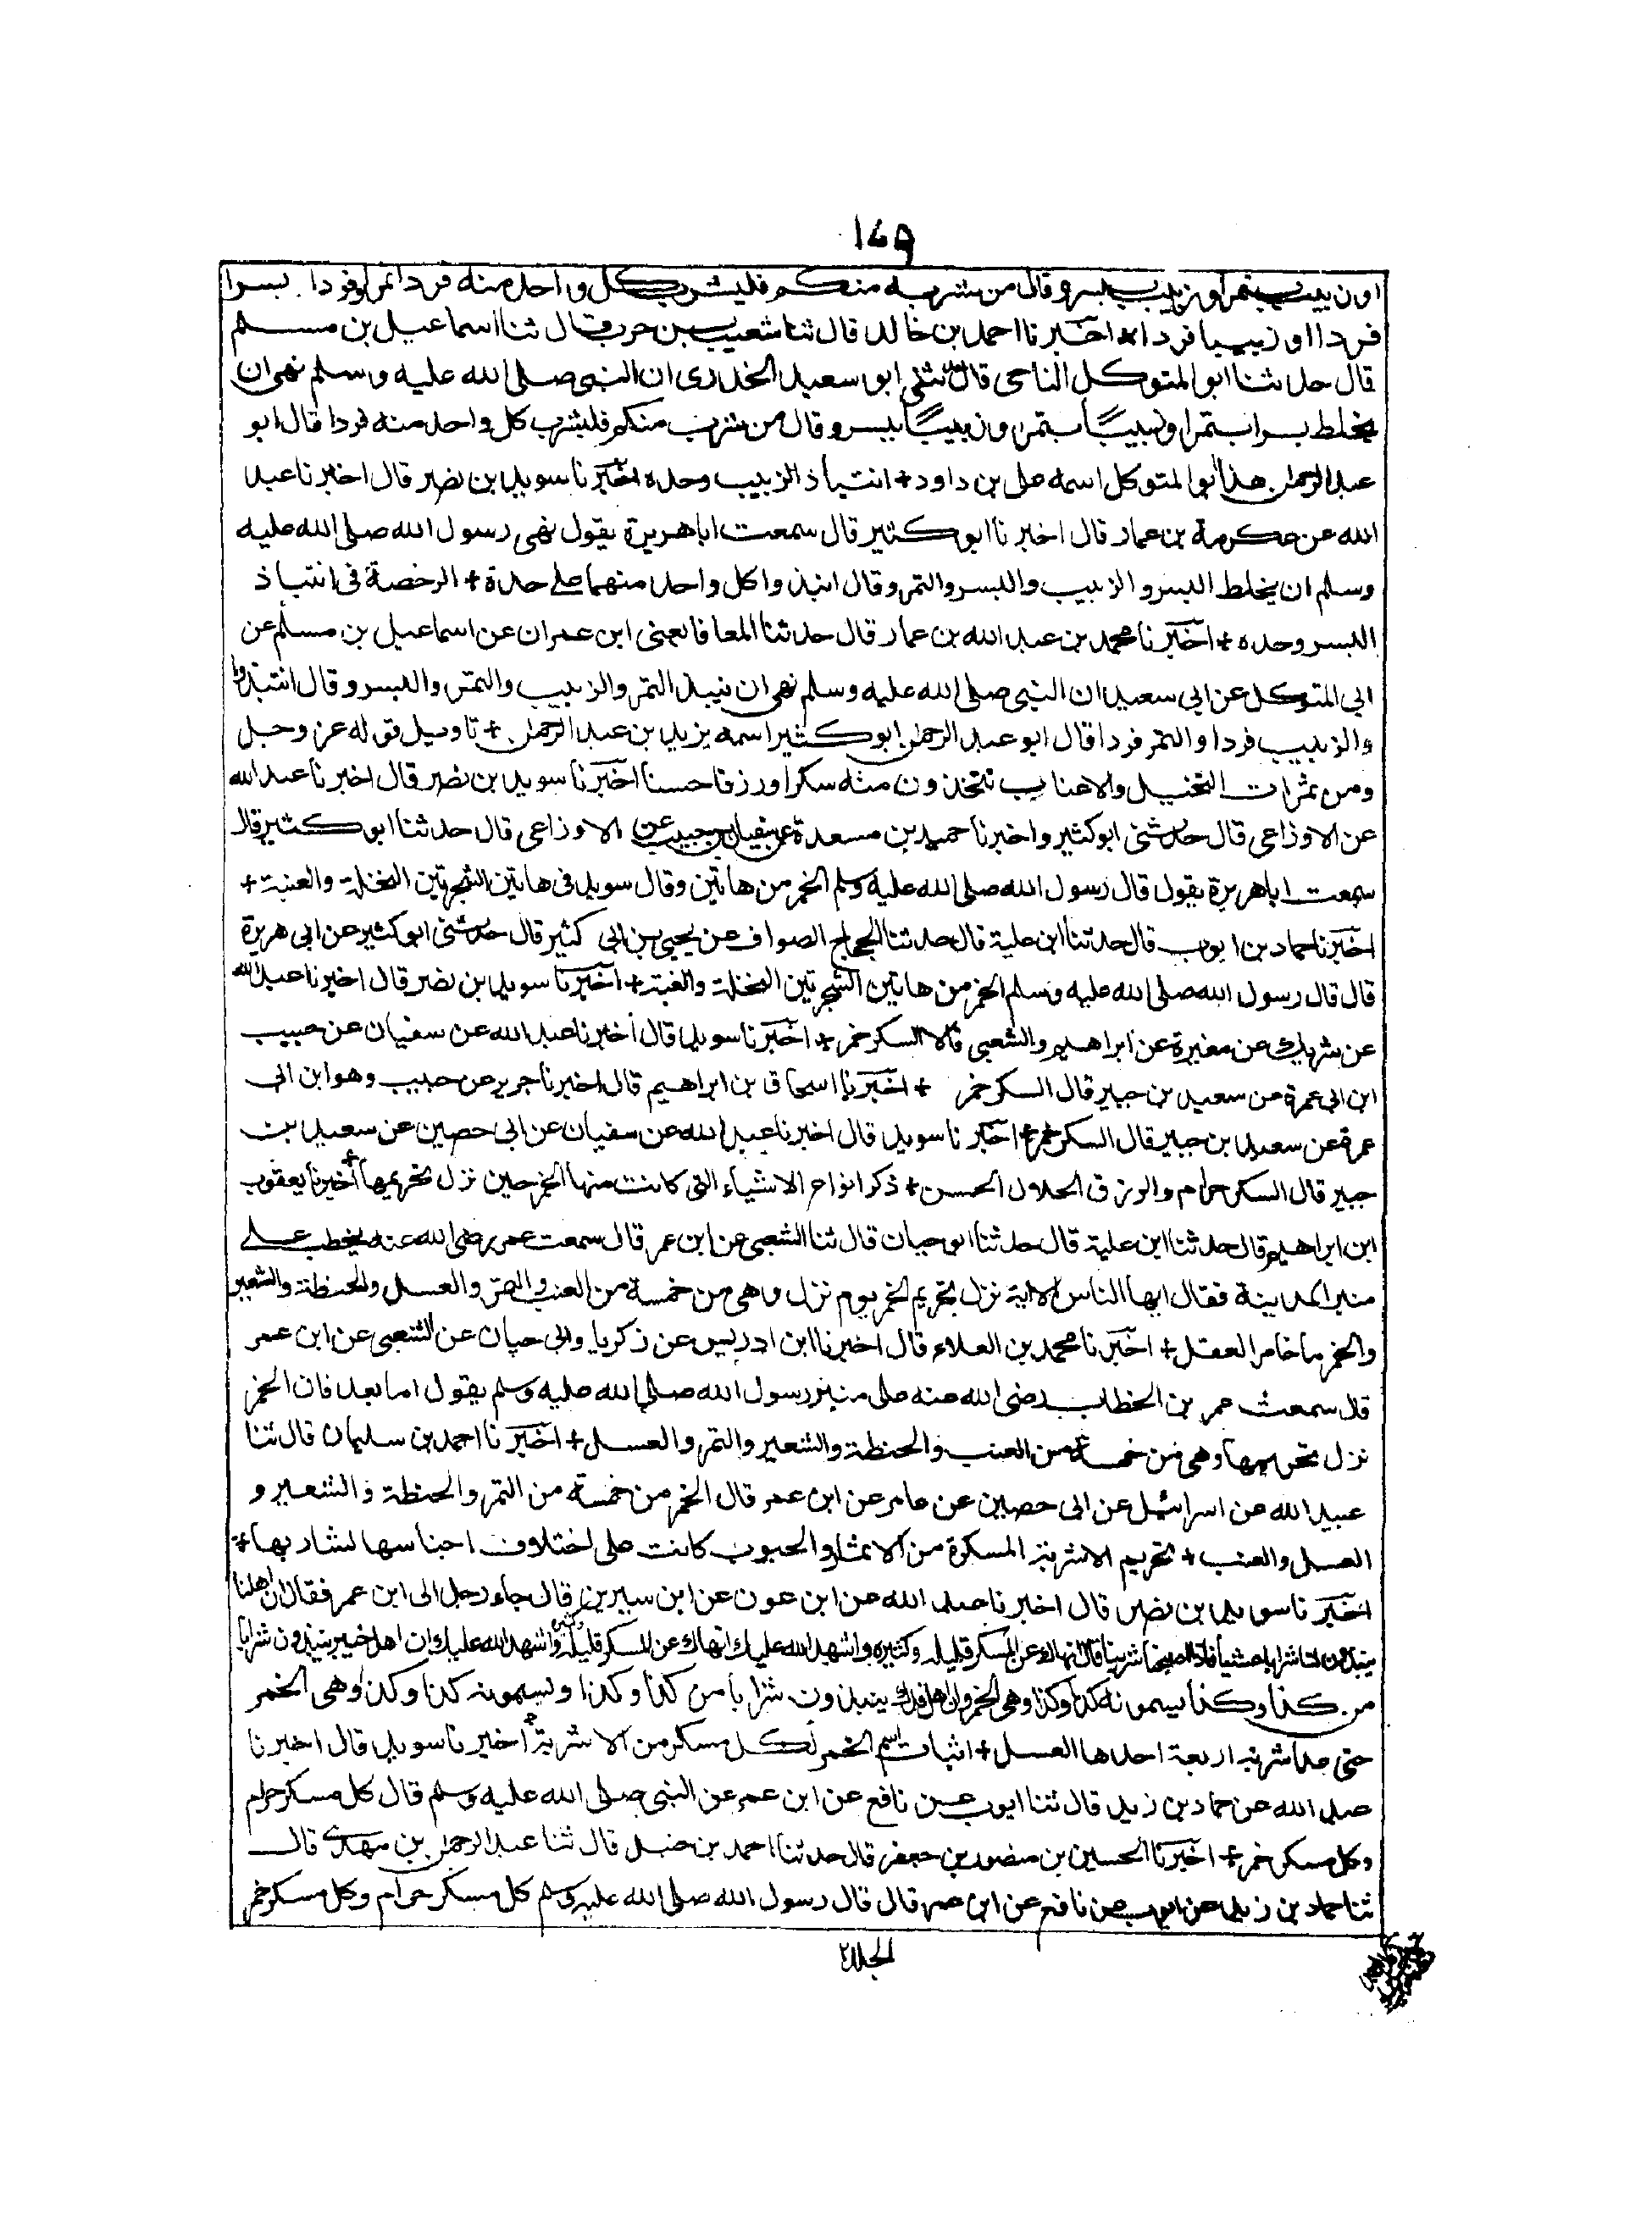 ١٦٩
او زبيب بتمر او زبيب ببسر وقال من شربه منكم فليشرب كل واحد منه فردا تمرا فردا بسرا
فردا او زبيبا فردا + اخبرنا احمد بن خالد قال ثنا شعيب بن حرب قال ثنا اسماعيل بن مسلم
قال حدثنا ابو المتوكل الناجى قال حدثنى ابو سعيد الخدرى ان النبى صلى الله عليه وسلم نهى ان
يخلط بسرا بتمر او زبيبا بتمر او زبيبا ببسر وقال من شرب منكم فليشرب كل واحد منه فردا قال ابو
عبد الرحمن هذا ابو المتوكل اسمه على بن داود + انتباذ الزبيب وحده اخبرنا سويد بن نصر قال اخبرنا عبد
الله عن عكرمة بن عمار قال اخبرنا ابو كثير قال سمعت ابا هريرة يقول نهى رسول الله صلى الله عليه
وسلم ان يخلط البسر و الزبيب والبسر والتمر وقال انبذوا كل واحد منهما على حدة + الرخصة فى انتباذ
البسر وحده + اخبرنا محمد بن عبد الله بن عمار قال حدثنا المعافا يعنى ابن عمران عن اسماعيل بن مسلم عن
ابى المتوكل عن ابى سعيد ان النبى صلى الله عليه وسلم نهى ان ينبذ التمر والزبيب والتمر والبسر وقال انتبذوا
والزبيب فردا والتمر فردا قال ابو عبد الرحمن ابو كثير اسمه يزيد بن عبد الرحمن + تاويل قوله عز وجل
ومن ثمرات النخيل والاعناب تتخذون منه سكرا ورزقا حسنا اخبرنا سويد بن نصر قال اخبرنا عبد الله
عن الاوزاعى قال حدثنى ابو كثير واخبرنا حميد بن مسعدة عن سفيان بن حبيب عن الاوزاعى قال حدثنا ابو كثير قال
سمعت ابا هريرة يقول قال رسول الله صلى الله عليه وسلم الخمر من هاتين وقال سويد فى هاتين الشجرتين النخلة والعنبة +
اخبرنا حماد بن ايوب قال حدثنا ابن علية قال حدثنا الحجاج الصواف عن يحيى بن ابى كثير قال حدثنى ابو كثير عن ابى هريرة
قال قال رسول الله صلى الله عليه وسلم الخمر من هاتين الشجرتين النخلة والعنبة + اخبرنا سويد بن نصر قال اخبرنا عبد الله
عن شريك عن مغيرة عن ابراهيم والشعبى قالا السكر خمر + اخبرنا سويد قال اخبرنا عبد الله عن سفيان عن حبيب
ابن ابى عمرة عن سعيد بن جبير قال السكر خمر + اخبرنا اسحاق بن ابراهيم قال اخبرنا جرير عن حبيب وهو ابن ابى
عمرة عن سعيد بن جبير قال السكر خمر + اخبرنا سويد قال اخبرنا عبد الله عن سفيان عن ابى حصين عن سعيد بن
جبير قال السكر حرام والرزق الحلال الحسن + ذكر انواع الاشياء التى كانت منها الخمر حين نزل تحريمها + اخبرنا يعقوب
ابن ابراهيم قال حدثنا ابن علية قال حدثنا ابو حيان قال ثنا الشعبى عن ابن عمر قال سمعت عمر رضى الله عنه يخطب على
منبر المدينة فقال ايها الناس الا انه نزل تحريم الخمر يوم نزل وهى من خمسة من العنب والتمر والعسل والحنطة والشعير
والخمر ما خامر العقل + اخبرنا محمد بن العلاء قال اخبرنا ابن ادريس عن زكريا وابى حيان عن الشعبى عن ابن عمر
قال سمعت عمر بن الخطاب رضى الله عنه على منبر رسول الله صلى الله عليه وسلم يقول اما بعد فان الخمر
نزل تحريمها وهى من خمسة من العنب والحنطة والشعير والتمر والعسل + اخبرنا احمد بن سليمان قال ثنا
عبيد الله عن اسرائيل عن ابى حصين عن عامر عن ابن عمر قال الخمر من خمسة من التمر والحنطة والشعير و
العسل والعنب + تحريم الاشربة المسكرة من الاثمار والحبوب كانت على اختلاف اجناسها لشاربها +
اخبرنا سويد بن نصر قال اخبرنا عبد الله عن ابن عون عن ابن سيرين قال جاء رجل الى ابن عمر فقال ان اهلنا
ينبذون لنا شرابا عشيا فاذا اصبحنا شربنا قال انهاك عن المسكر قليله وكثيره واشهد الله عليك انهاك عن المسكر قليله وكثيره واشهد الله عليك ان اهل خيبر ينبذون شرابا
من كذا وكذا يسمونه كذا وكذا وهى الخمر وان اهل فدك ينبذون شرابا من كذا وكذا ويسمونه كذا وكذا وهى الخمر
حتى عد اشربة اربعة احدها العسل + اثبات اسم الخمر لكل مسكر من الاشربة + اخبرنا سويد قال اخبرنا
عبد الله عن حماد بن زيد قال ثنا ايوب عن نافع عن ابن عمر عن النبى صلى الله عليه وسلم قال كل مسكر حرام
وكل مسكر خمر + اخبرنا الحسين بن منصور بن جعفر قال حدثنا احمد بن حنبل قال ثنا عبد الرحمن بن مهدى قال
ثنا حماد بن زيد عن ايوب عن نافع عن ابن عمر قال قال رسول الله صلى الله عليه وسلم كل مسكر حرام وكل مسكر خمر
المجلد ٢